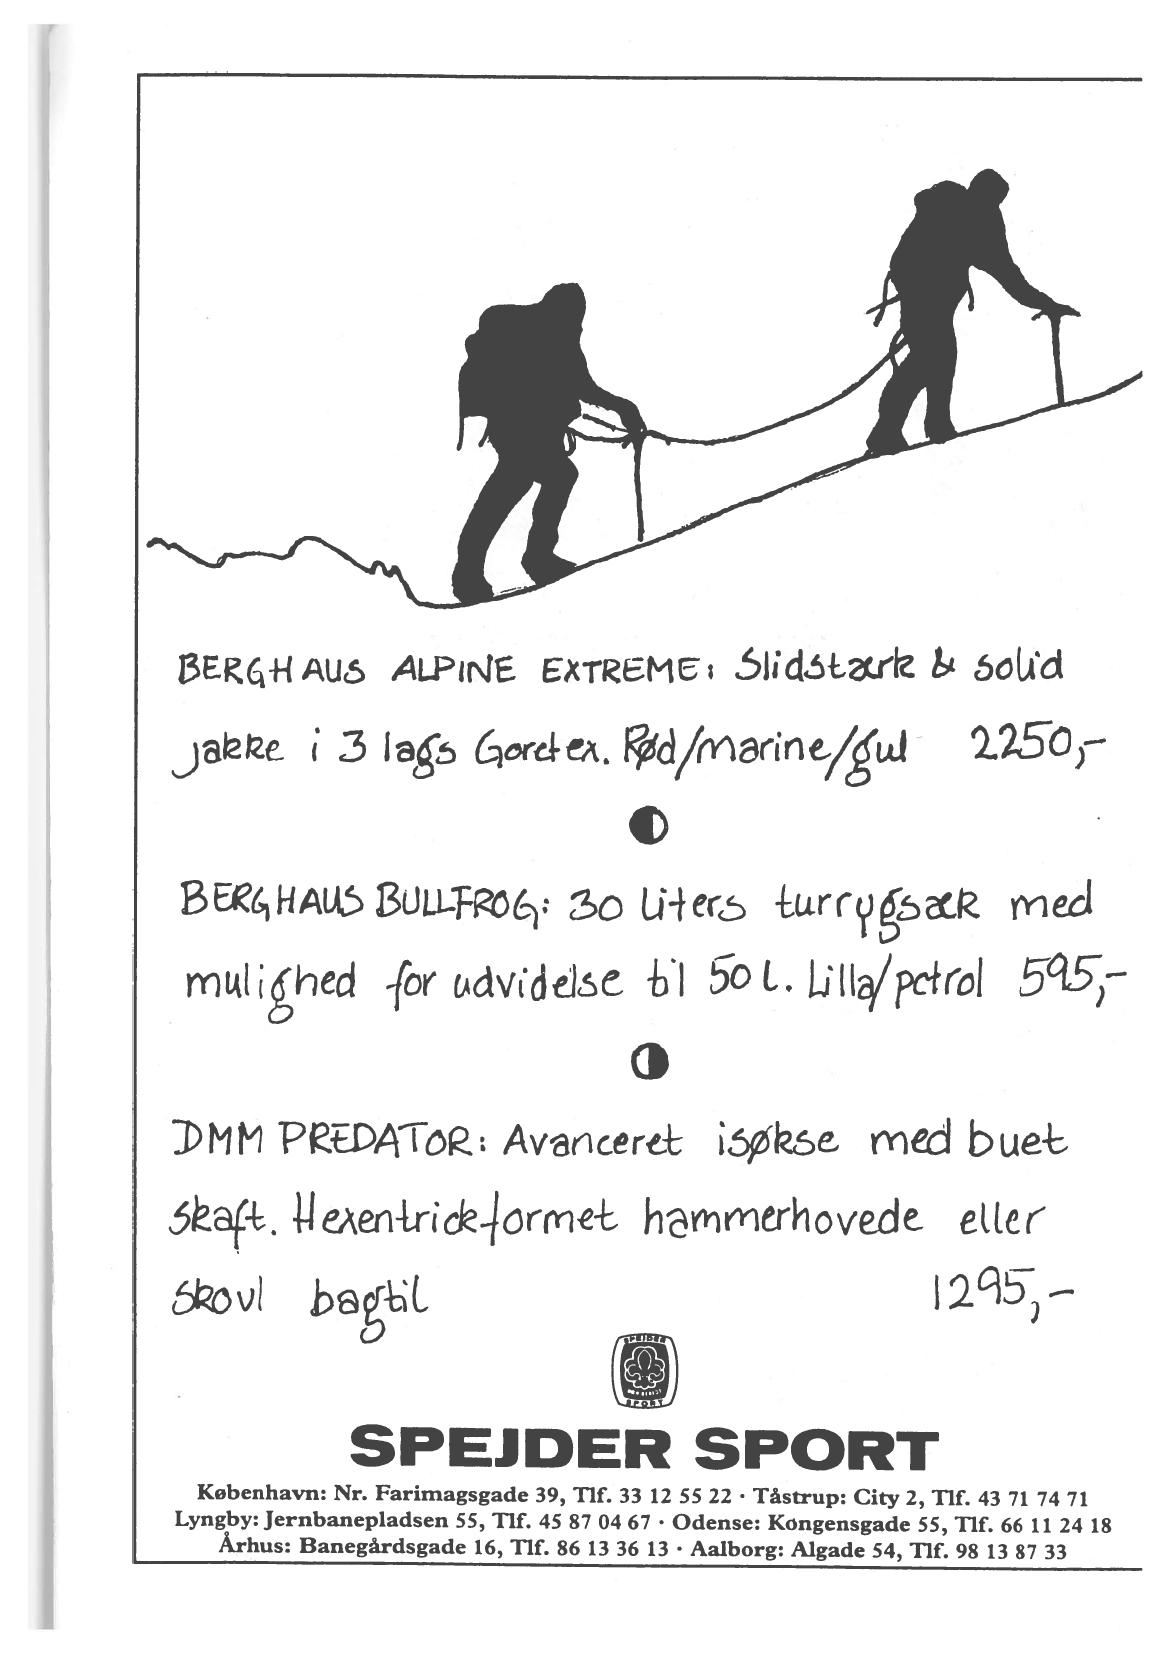 BERGHAUS ALPINE EXTREME: Slidstærk & solid
jakke i 3 lags Goretex. Rød/marine/gul 2250,-
BERGHAUS BULLFROG: 30 liters turrygsæk med
mulighed for udvidelse til 50 l. Lilla/petrol 595,-
DMM PREDATOR: Avanceret isøkse med buet
skaft. Hexentrickformet hammerhovede eller
skovl bagtil 1295,-
SPEJDER
SPORT
SPEJDER SPORT
København: Nr. Farimagsgade 39, Tlf. 33 12 55 22 · Tåstrup: City 2, Tlf. 43 71 74 71
Lyngby: Jernbanepladsen 55, Tlf. 45 87 04 67 · Odense: Kongensgade 55, Tlf. 66 11 24 18
Århus: Banegårdsgade 16, Tlf. 86 13 36 13 · Aalborg: Algade 54, Tlf. 98 13 87 33